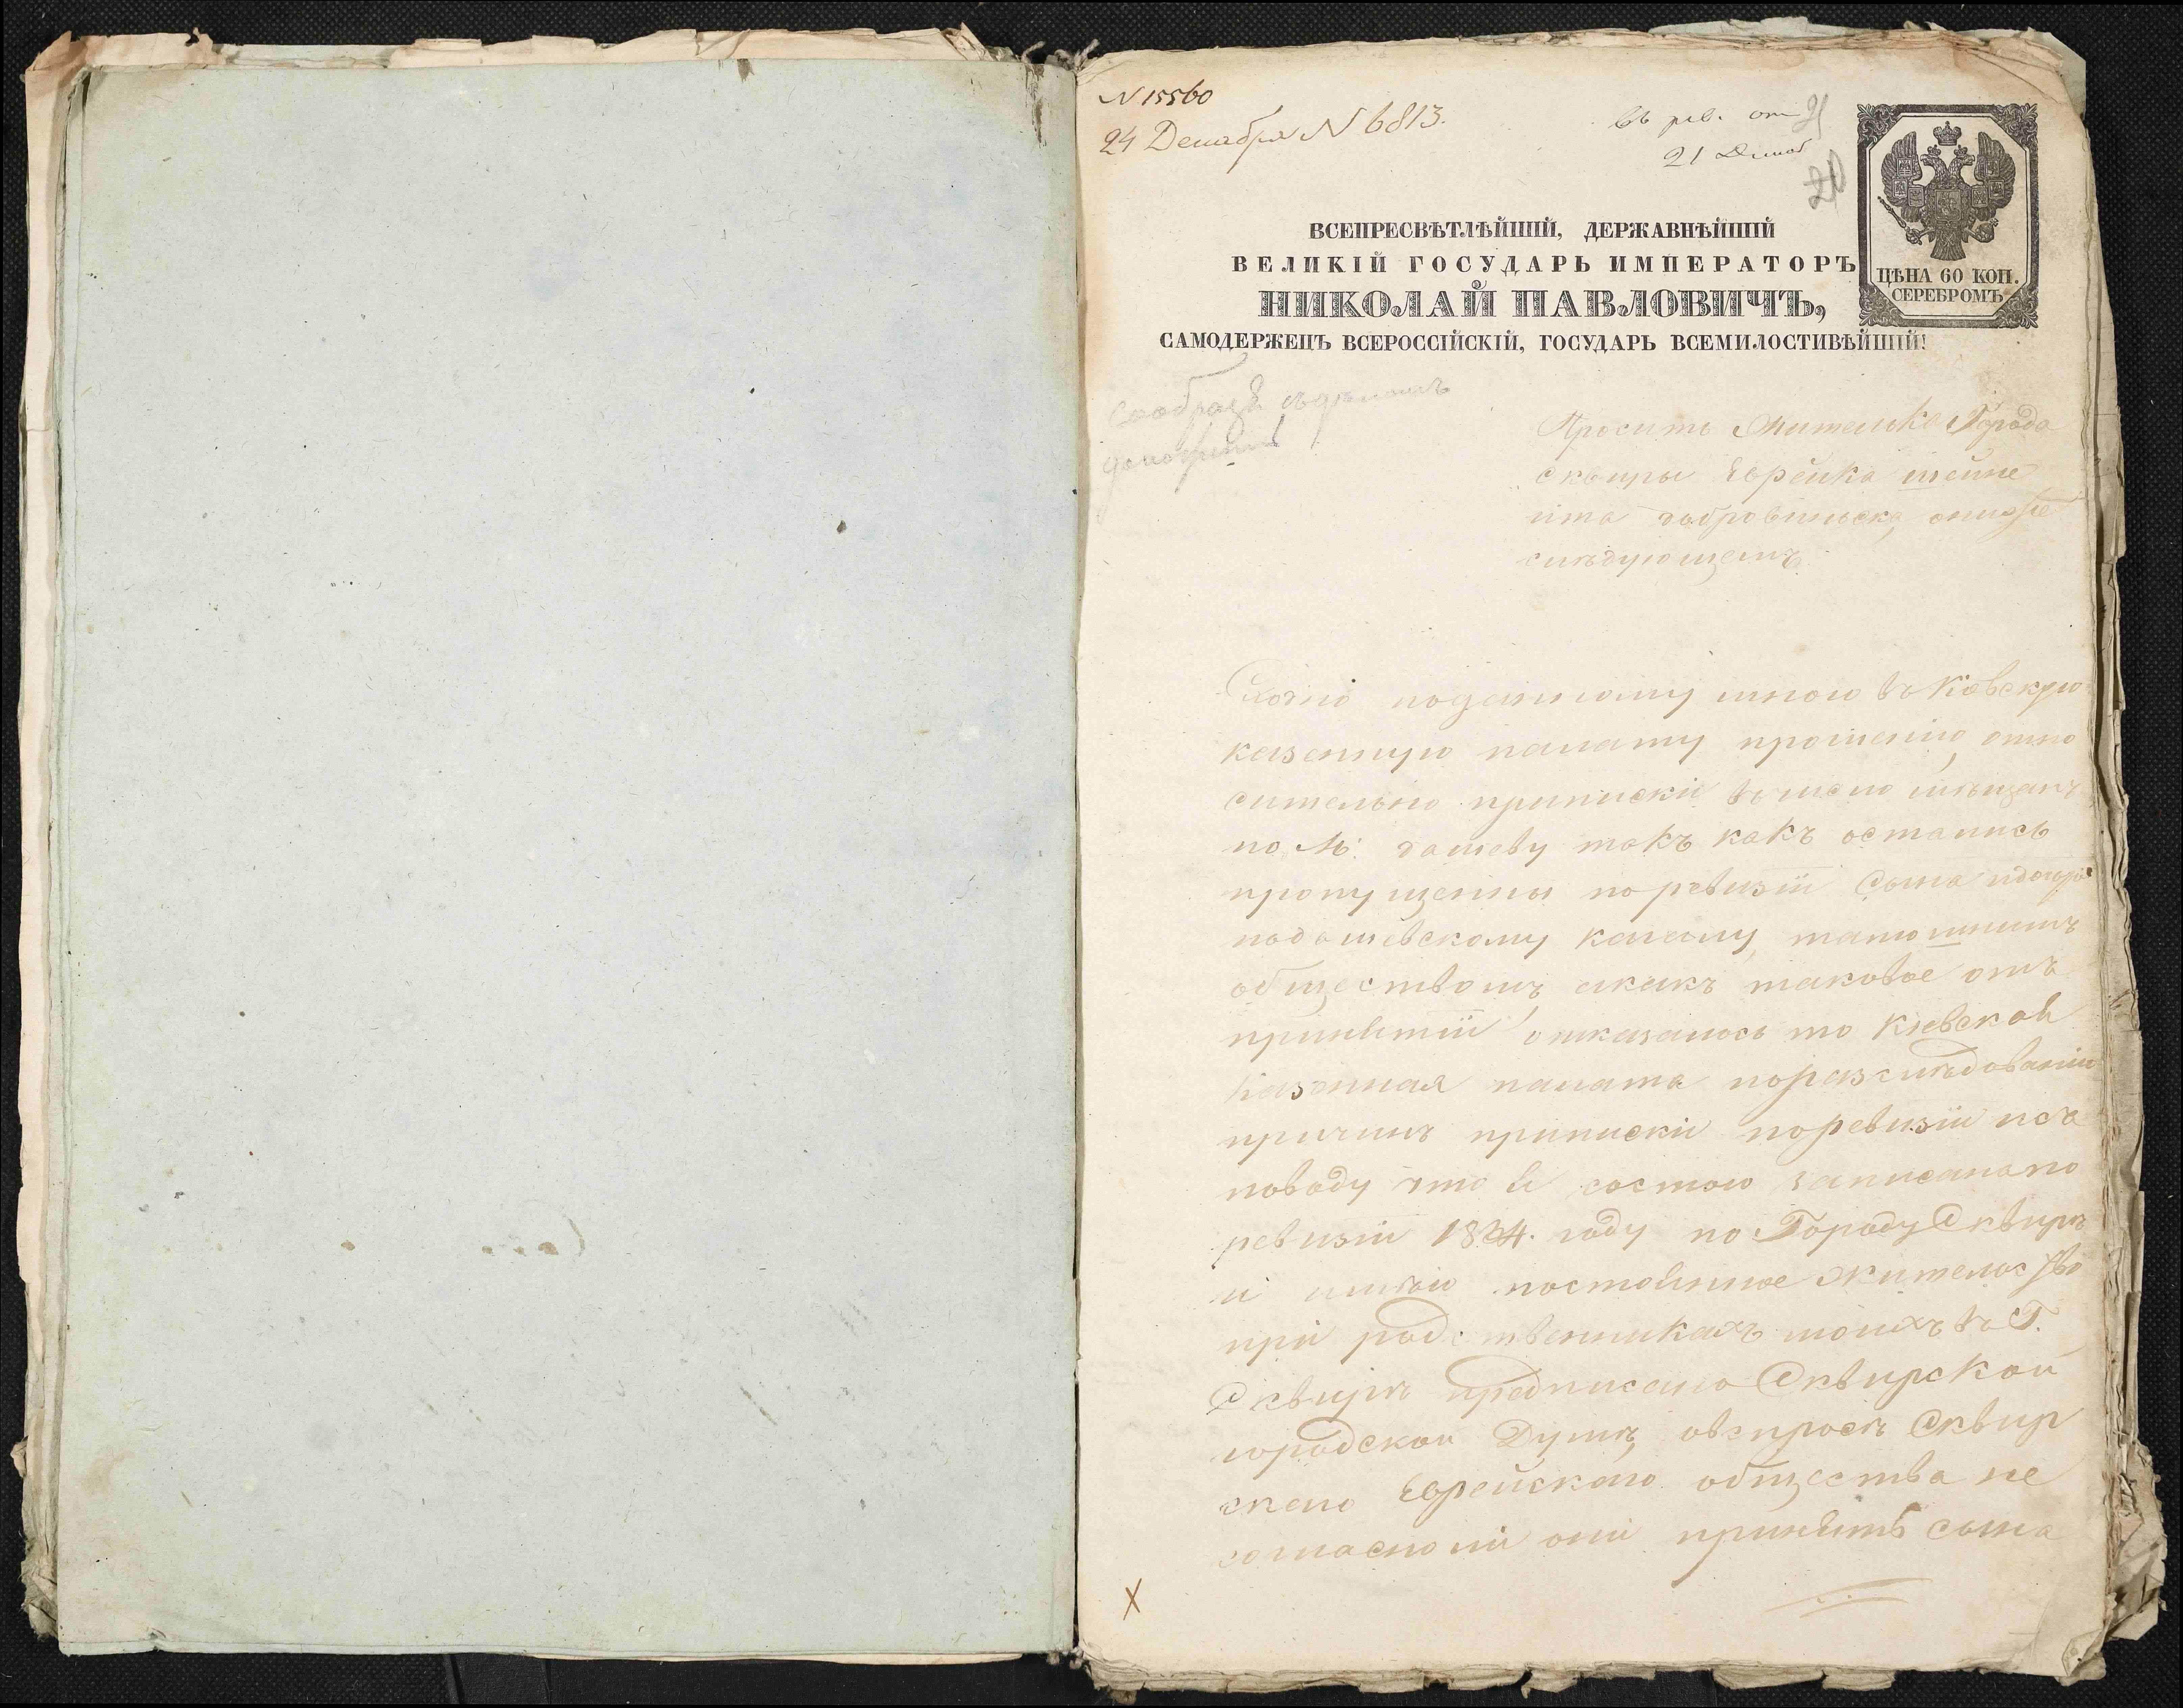 N 15560
24 Декабря N 6813.
въ рев. от
21 Декаб
ЦѢНА 60 КОП.
СЕРЕБРОМЪ
ВСЕПРЕСВѢТЛѢЙШІЙ, ДЕРЖАВНѢЙШІЙ
ВЕЛИКІЙ ГОСУДАРЬ ИМПЕРАТОРЪ
НИКОЛАЙ ПАВЛОВИЧЪ,
САМОДЕРЖЕЦЪ ВСЕРОССІЙСКІЙ, ГОСУДАРЬ ВСЕМИЛОСТИВѢЙШІЙ!
Проситъ Жителька Города
Сквиры Еврейка
слѣдующемъ
поданному мною въ Кіевскую
казенную палату прошенію, отно
сительно приписки въ число мѣщанъ
по М: Дашеву такъ какъ остались
пропущенны поревизіи Сына
подашевскому кагалу,
обществомъ, акакъ таковое отъ
принятіи отказалось то Кіевская
Казенная палата поразслѣдованіи
причинъ приписки поревизіи исъ
поводу что я состою записана по
ревизіи 1834. году по Городу Сквирѣ
и имѣю постоянное жительство
при родственникахъ моихъ въ Г.
Сквирѣ предписано Сквирской
городской Думѣ, обспросѣ Сквир
скаго Еврейскаго общества не
согласноли они принять сына